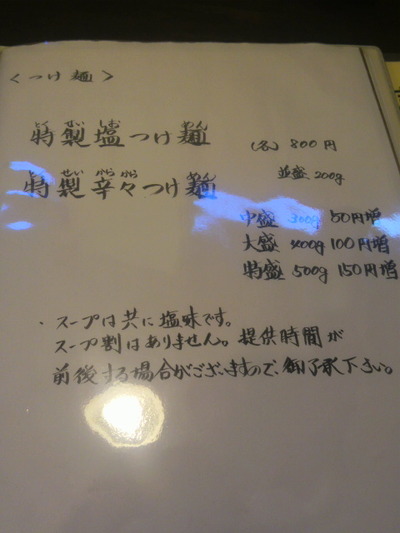 <つけ麺>
とくせいしおめん
特製塩つけ麺
(各) 800円
せいからから
特製辛々つけ麺
並盛 200g
中盛 300g 50円増
大盛 400g 100円増
特盛 500g 150円増
・スープは共に塩味です。
スープ割はありません。提供時間が
前後する場合がございますので、御了承下さい。